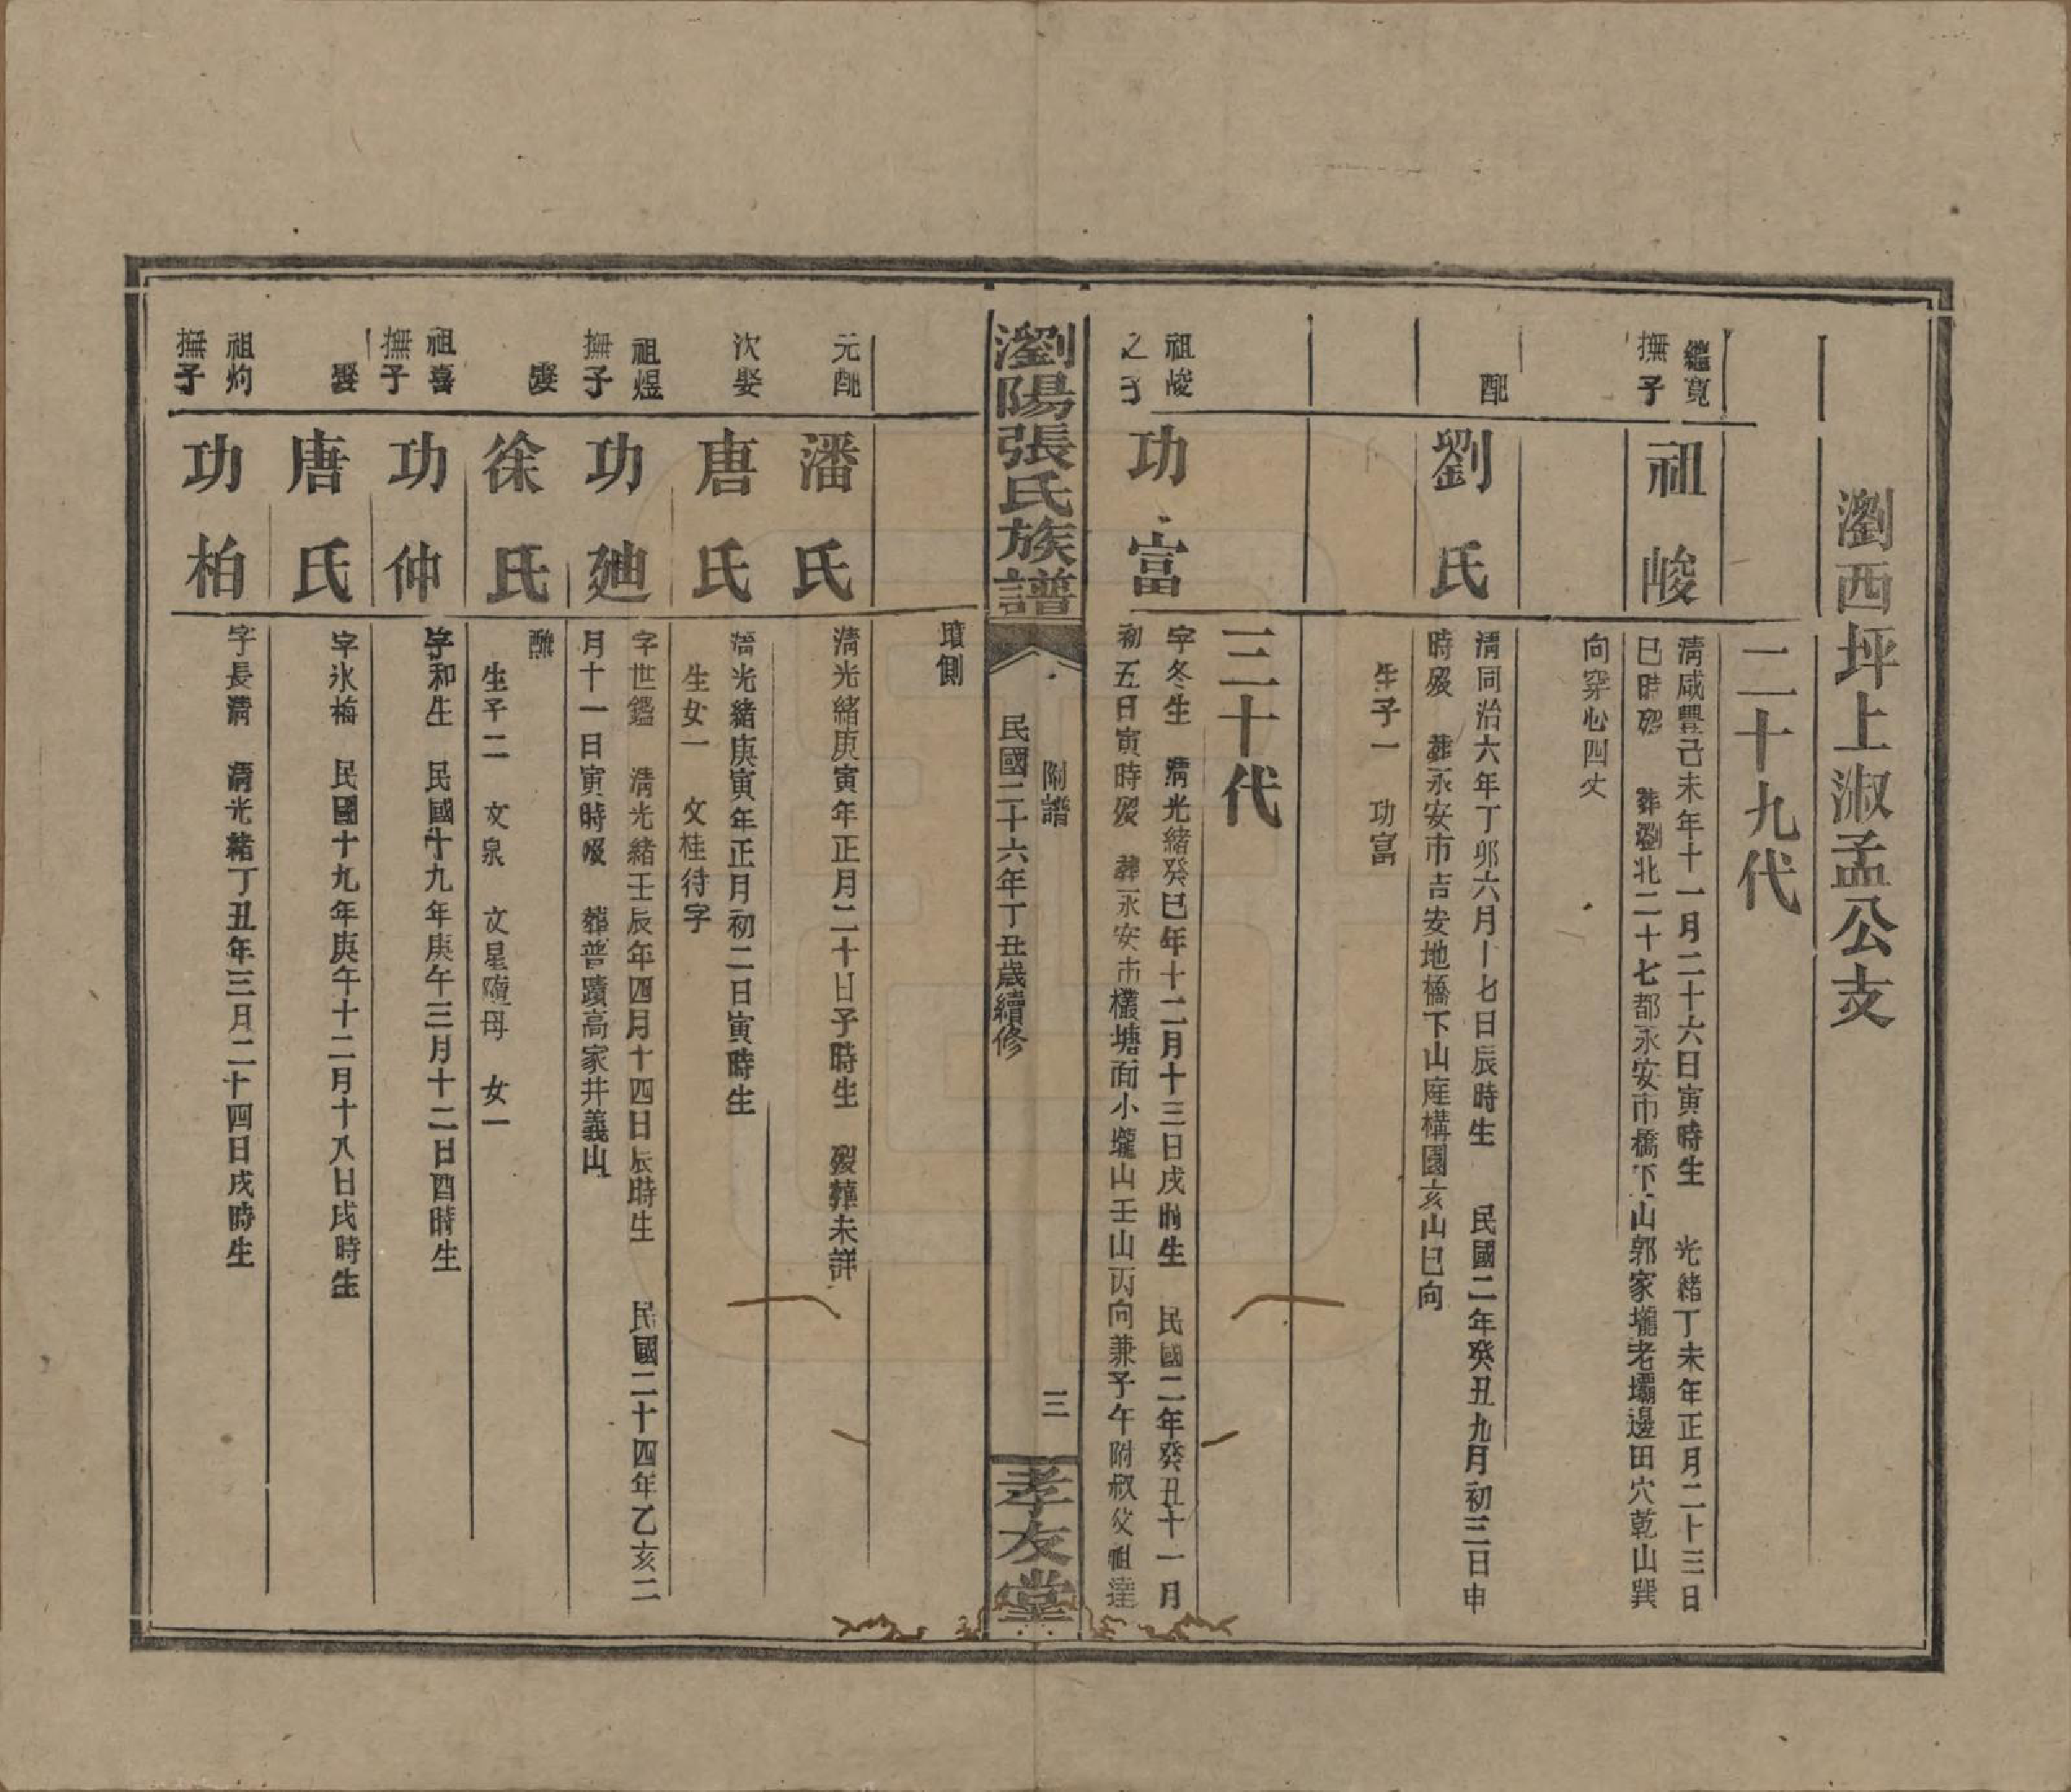 瀏西坪上淑孟公支
二十九代
繼寬
撫子
祖峻
清咸豐己未年十一月二十六日寅時生 光緒丁未年正月二十三日
巳時歿 葬瀏北二十七都永安市橋下山郭家壠老壩邊田穴乾山巽
向穿心四丈
配
劉氏
清同治六年丁卯六月十七日辰時生 民國二年癸丑九月初三日申
時歿 葬永安市吉安地橋下山庭構園亥山巳向
生子一 功富
三十代
祖峻
之子
功富
字冬生 清光緒癸巳年十二月十三日戌時生 民國二年癸丑十一月
初五日寅時歿 葬永安市欉塘面小壠山壬山丙向兼子午附叔父祖達
瀏陽張氏族譜
附譜
民國二十六年丁丑歲續修
三
孝友堂
墳側
元配
潘氏
清光緒庚寅年正月二十日子時生 歿葬未詳
次娶
唐氏
清光緒庚寅年正月初二日寅時生
生女一 文桂待字
祖煜
撫子
功廸
字世鑑 清光緒壬辰年四月十四日辰時生 民國二十四年乙亥二
月十一日寅時歿 葬普蹟高家井義山
娶
徐氏
醮
生子二 文泉 文星隨母 女一
祖喜
撫子
功仲
字和生 民國十九年庚午三月十二日酉時生
娶
唐氏
字氷梅 民國十九年庚午十二月十八日戌時生
祖灼
撫子
功柏
字長清 清光緒丁丑年三月二十四日戌時生